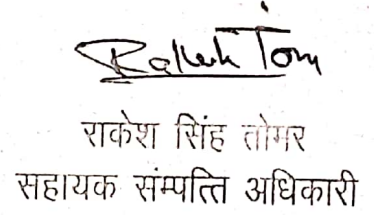 Rakesh Tom
राकेश सिंह तोमर
सहायक संम्पत्ति अधिकारी